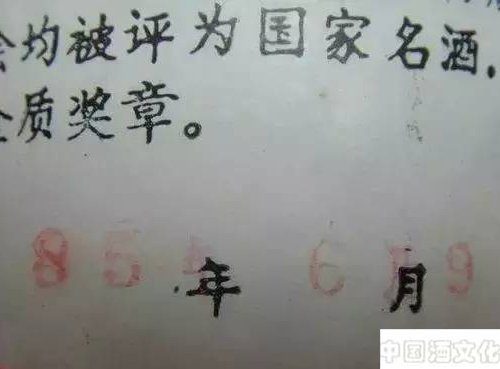 会均被评为国家名酒,
金质奖章。
85 年 6 月 9
中国酒文化